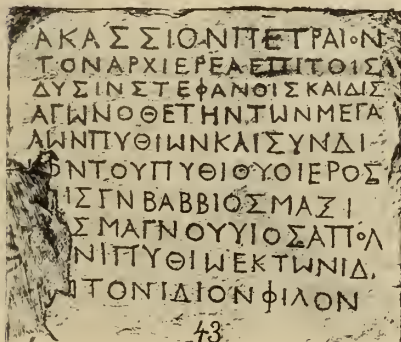 ΑΚΑΣΣΙΟΝΠΕΤΡΑΙΟΝ
ΤΟΝΑΡΧΙΕΡΕΑΕΠΙΤΟΙΣ
ΔΥΣΙΝΣΤΕΦΑΝΟΙΣΚΑΙΔΙΣ
ΑΓΩΝΟΘΕΤΗΝΤΩΝΜΕΓΑ
ΛΩΝΠΥΘΙΩΝΚΑΙΣΥΝΔΙ
ΟΝΤΟΥΠΥΘΙΟΥΟΙΕΡΟΣ
ΙΣΓΝΒΑΒΒΙΟΣΜΑΞΙ
ΣΜΑΓΝΟΥΥΙΟΣΑΠΟΛ
ΝΙΠΥΘΙΩΕΚΤΩΝΙΔ
ΤΟΝΙΔΙΟΝΦΙΛΟΝ
43